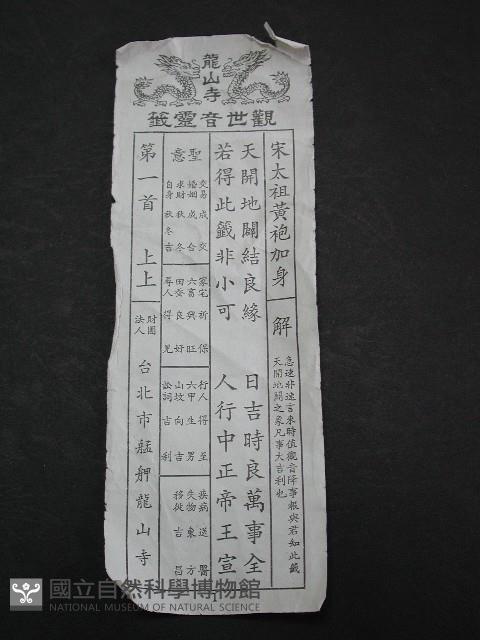 龍山寺
觀世音靈籤
宋太祖黃袍加身
解
急速非速言來時值觀音降事報與君知此籤
天開地闢之象凡事大吉利也
天開地闢結良緣 日吉時良萬事全
若得此籤非小可 人行中正帝王宣
聖意
交易 成 交
婚姻 成 合
求財 秋 冬
自身 秋冬吉
家宅 祈 保
六畜 興 旺
田蚕 良 好
尋人 得 見
行人 得 至
六甲 生 男
山坟 向 吉
訟詞 吉 利
疾病 送 醫
失物 東 方
移徙 吉 昌
第一首 上上
財團法人
台北市艋舺龍山寺
1
國立自然科學博物館
NATIONAL MUSEUM OF NATURAL SCIENCE